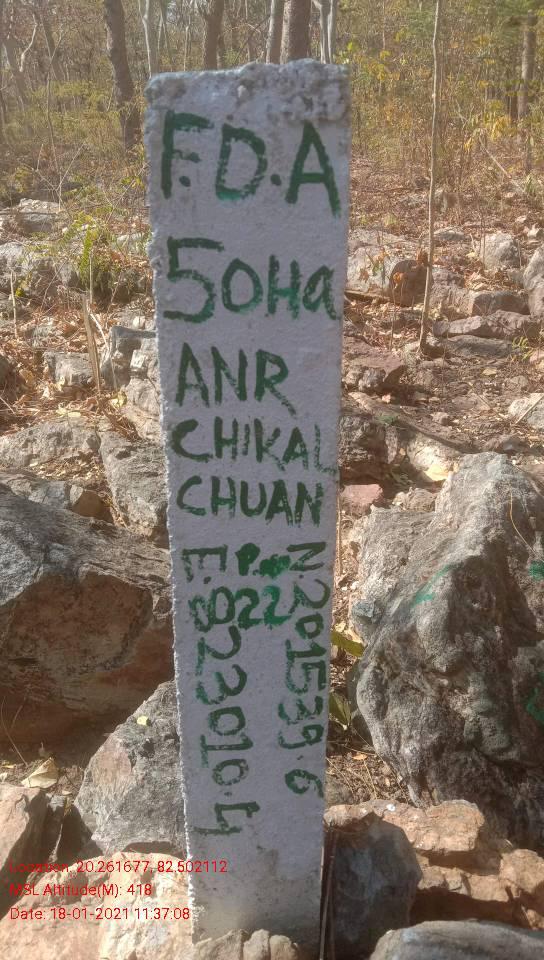 F.D.A
50Ha
ANR
CHIKAL
CHUAN
P.no
022
E.823010.4
N.201539.6
Location: 20.261677, 82.502112
MSL Altitude(M): 418
Date: 18-01-2021 11:37:08